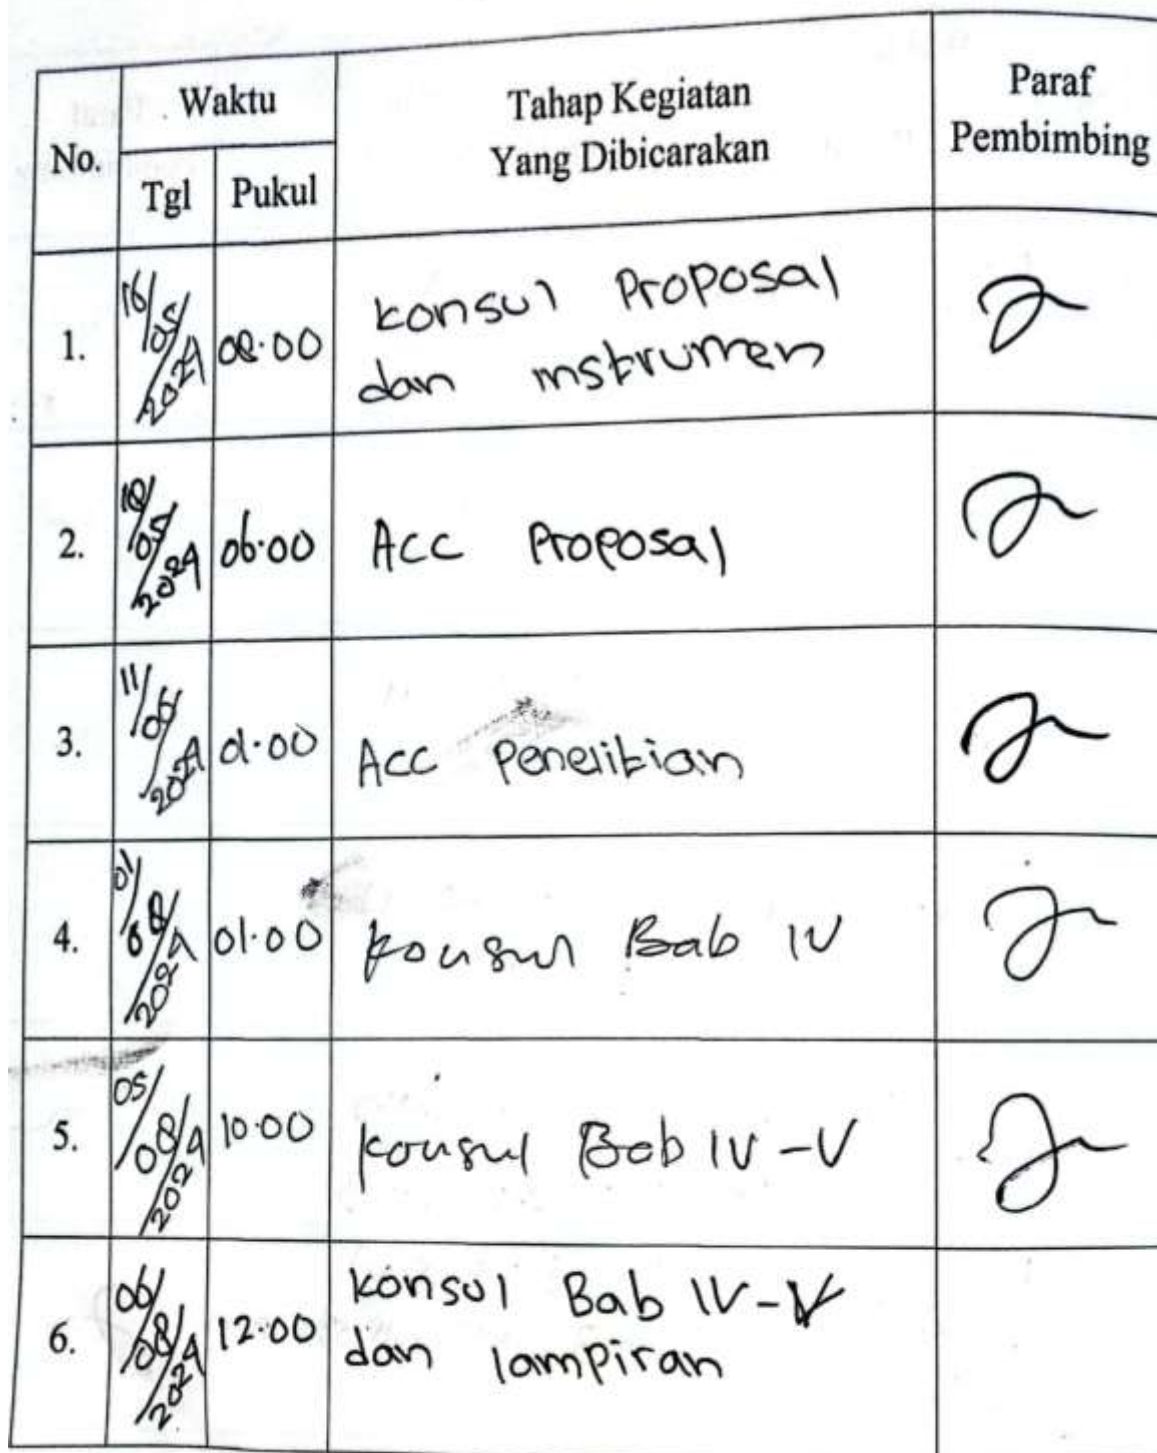 No.
Waktu
Tgl
Pukul
Tahap Kegiatan
Yang Dibicarakan
Paraf
Pembimbing
1.
16/05/2024
08.00
konsul Proposal
dan instrumen
2.
18/05/2024
06.00
Acc Proposal
3.
11/06/2024
Acc Penelitian
4.
01/08/2024
01.00
konsul Bab IV
5.
05/08/2024
10.00
konsul Bab IV-V
6.
06/08/2024
12.00
konsul Bab IV-V
dan lampiran